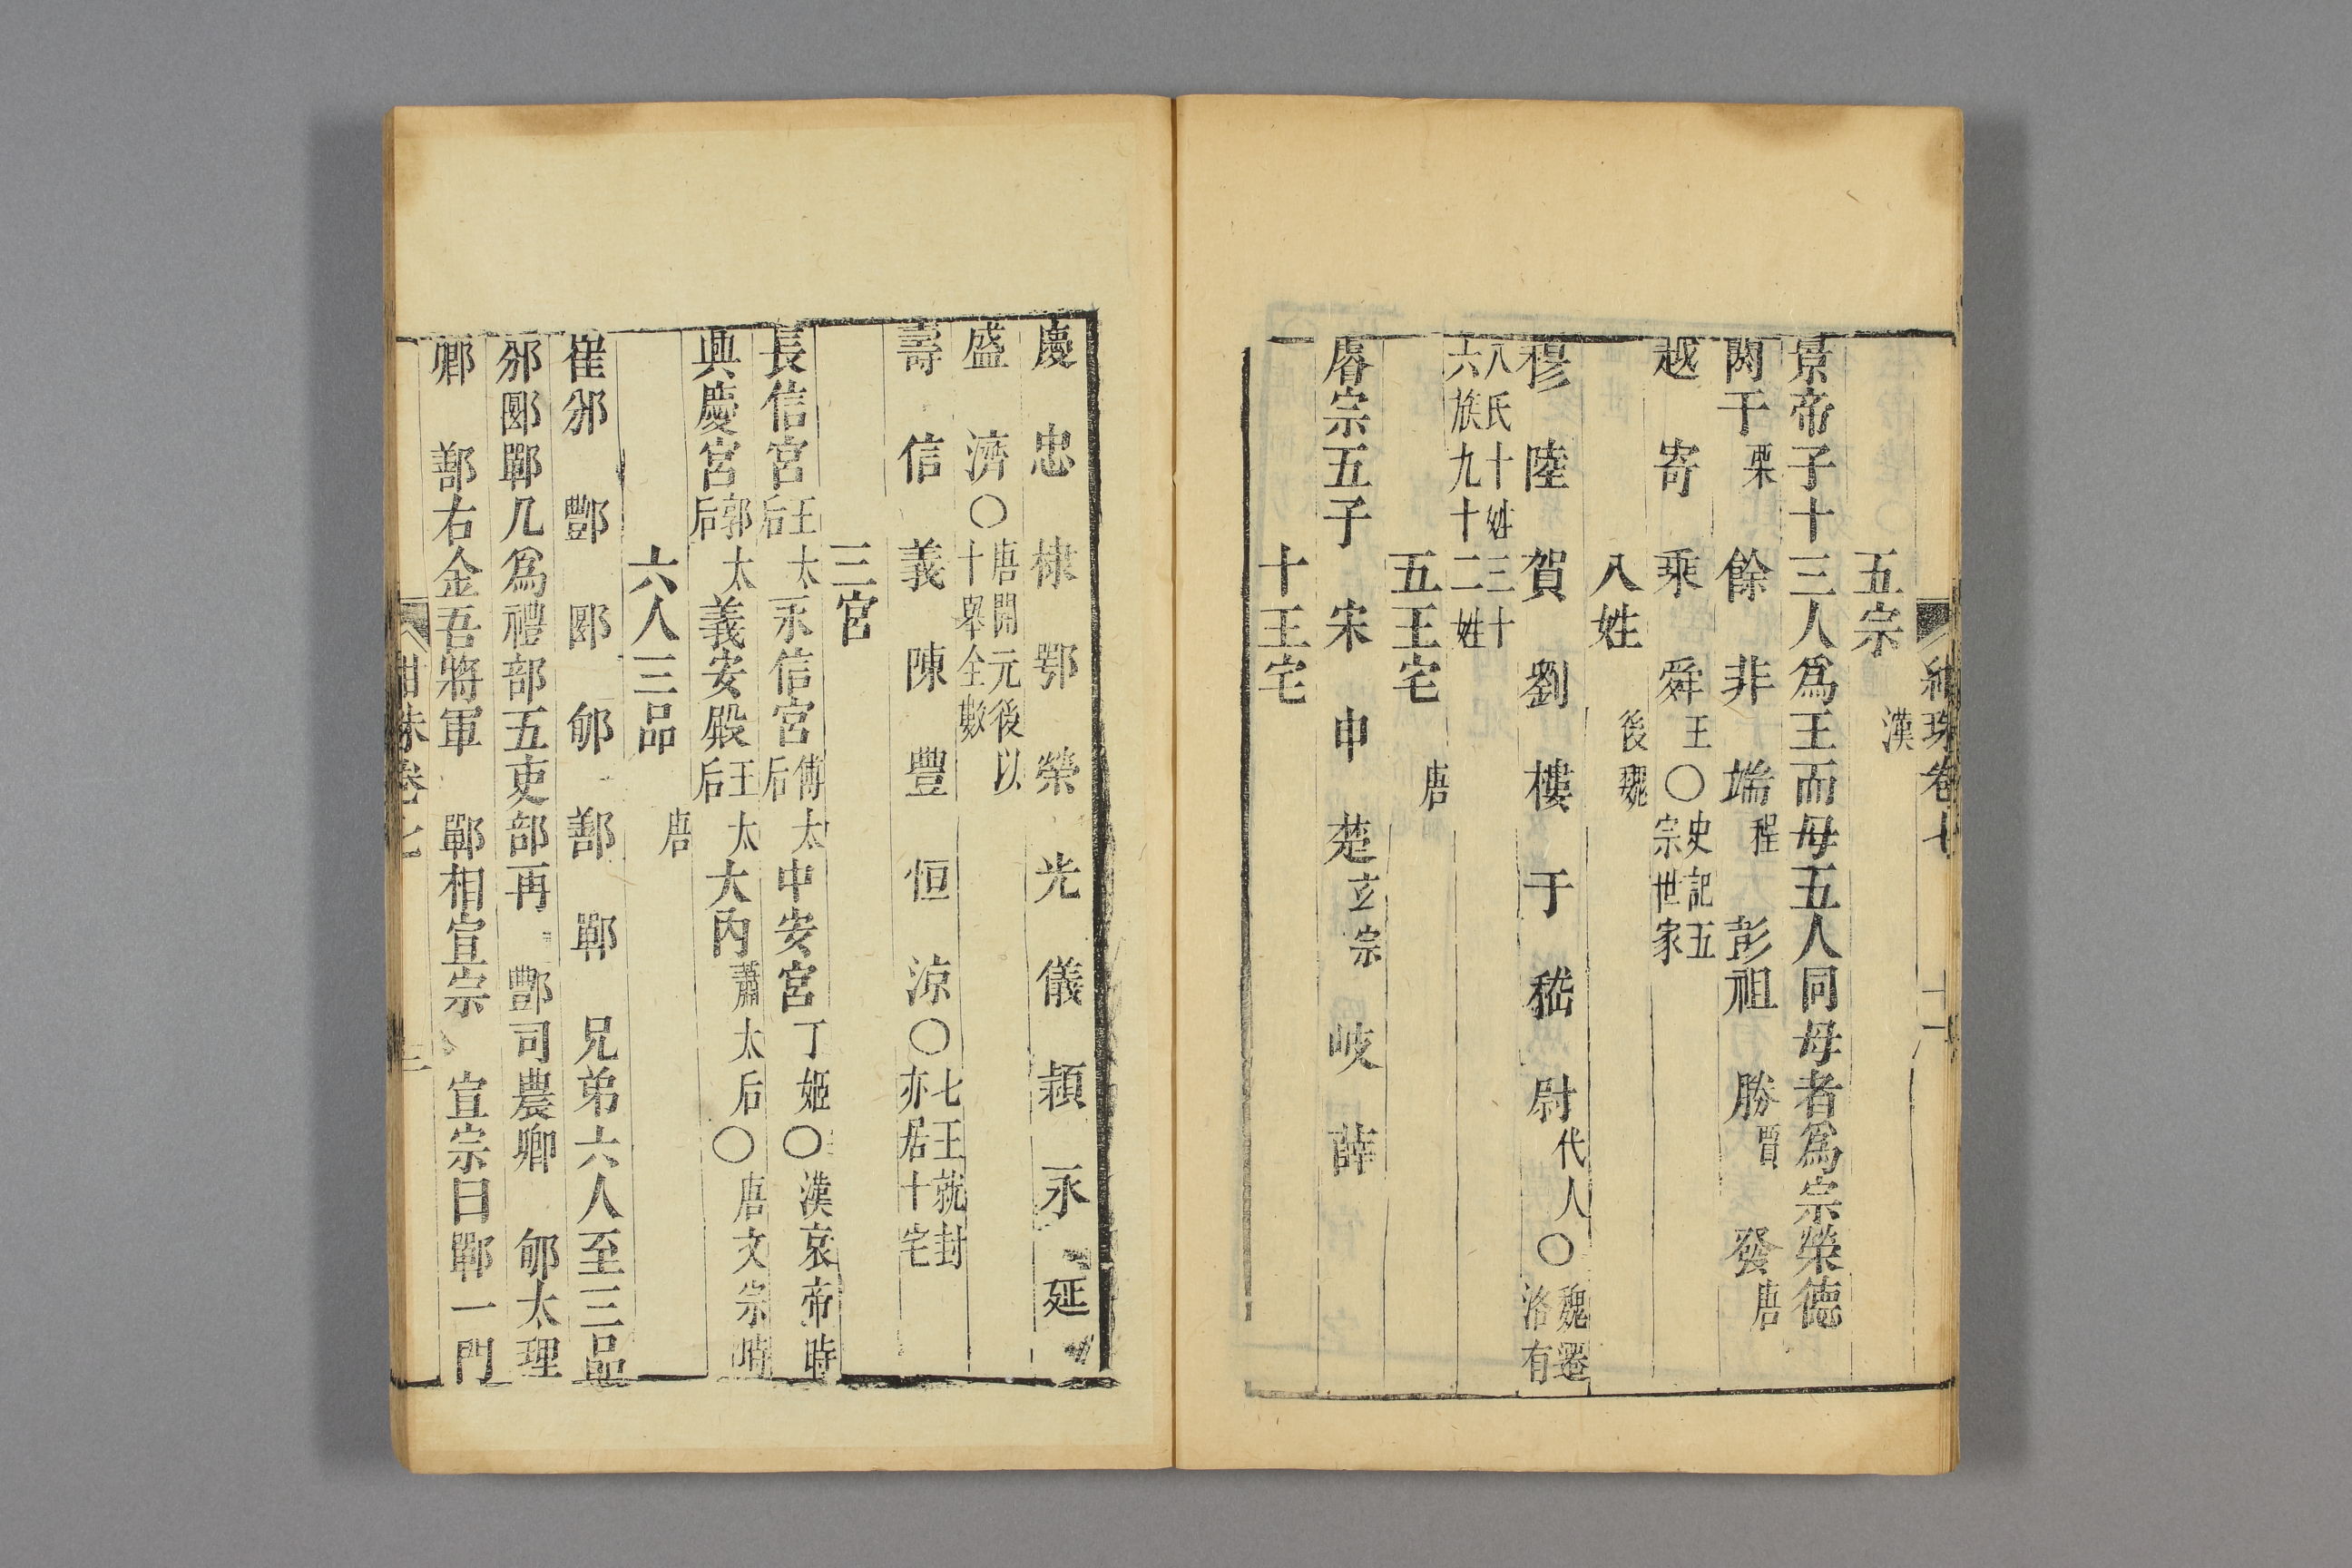 紺珠卷七
五宗 漢
景帝子十三人爲王而母五人同母者爲宗榮德
閼于栗 餘 非 端程 彭祖 勝賈 發唐
越 寄 乘 舜王〇史記五宗世家
八姓 後魏
穆 陸 賀 劉 樓 于 嵇 尉代人〇魏遷洛有
八氏十姓三十六族九十二姓
五王宅 唐
睿宗五子 宋 申 楚玄宗 岐 薛
十王宅
慶 忠 棣 鄂 榮 光 儀 潁 永 延
盛 濟〇唐開元後以十舉全數
壽 信 義 陳 豐 恒 涼〇七王就封亦居十宅
三宮
長信宮王太后 永信宮傅太后 中安宮丁姬〇漢哀帝時
興慶宮郭太后 義安殿王太后 大內蕭太后〇唐文宗時
六人三品 唐
崔邠 酆 郾 郇 鄯 鄲 兄弟六人至三品
邠郾鄲凡爲禮部五吏部再 酆司農卿 郇太理
卿 鄯右金吾將軍 鄲相宣宗 宣宗曰鄲一門
紺珠卷七